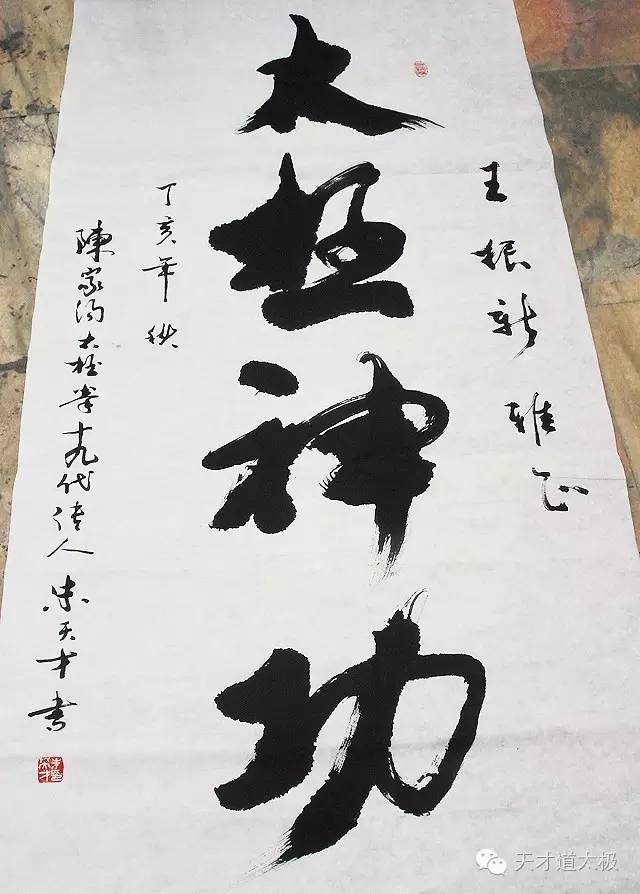 王振新 雅正
太極神功
丁亥年秋
陳家沟太極拳十九代传人 朱天才書
天才道太极